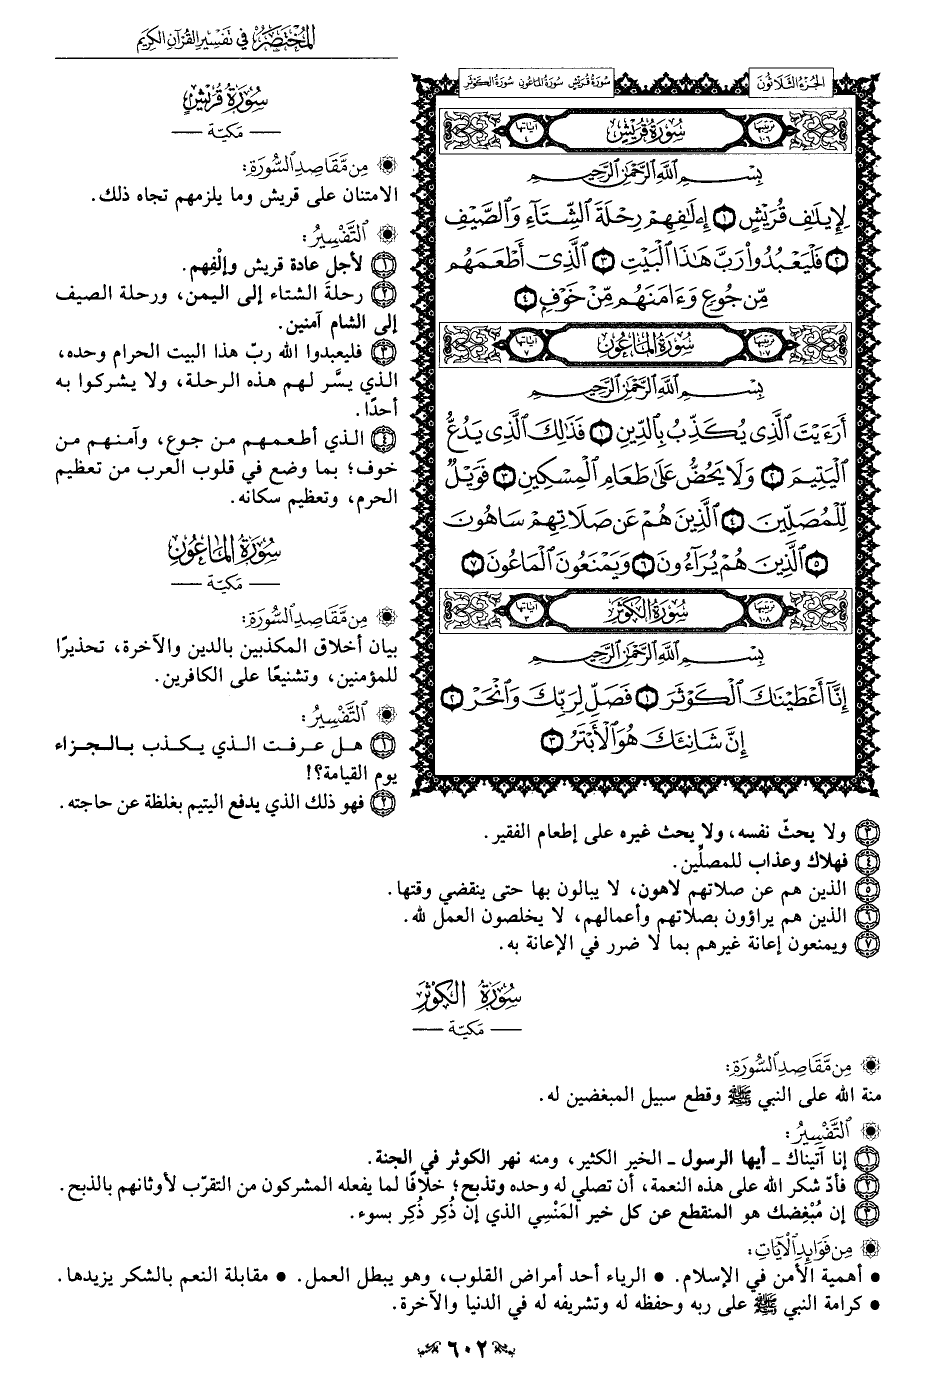 المُخْتَصَرُ في تَفْسِيرِ القُرْآنِ الكَرِيمِ
الجُزْءُ الثَّلَاثُونَ
سُورَةُ قُرَيْشٍ سُورَةُ المَاعُونِ سُورَةُ الكَوْثَرِ
ترتيبها ١٠٦ سُورَةُ قُرَيْشٍ آياتها ٤
بِسْمِ ٱللَّهِ ٱلرَّحْمَٰنِ ٱلرَّحِيمِ
لِإِيلَٰفِ قُرَيْشٍ ١ إِۦلَٰفِهِمْ رِحْلَةَ ٱلشِّتَآءِ وَٱلصَّيْفِ
٢ فَلْيَعْبُدُوا۟ رَبَّ هَٰذَا ٱلْبَيْتِ ٣ ٱلَّذِىٓ أَطْعَمَهُم
مِّن جُوعٍ وَءَامَنَهُم مِّنْ خَوْفٍ ٤
ترتيبها ١٠٧ سُورَةُ المَاعُونِ آياتها ٧
بِسْمِ ٱللَّهِ ٱلرَّحْمَٰنِ ٱلرَّحِيمِ
أَرَءَيْتَ ٱلَّذِى يُكَذِّبُ بِٱلدِّينِ ١ فَذَٰلِكَ ٱلَّذِى يَدُعُّ
ٱلْيَتِيمَ ٢ وَلَا يَحُضُّ عَلَىٰ طَعَامِ ٱلْمِسْكِينِ ٣ فَوَيْلٌ
لِّلْمُصَلِّينَ ٤ ٱلَّذِينَ هُمْ عَن صَلَاتِهِمْ سَاهُونَ
٥ ٱلَّذِينَ هُمْ يُرَآءُونَ ٦ وَيَمْنَعُونَ ٱلْمَاعُونَ ٧
ترتيبها ١٠٨ سُورَةُ الكَوْثَرِ آياتها ٣
بِسْمِ ٱللَّهِ ٱلرَّحْمَٰنِ ٱلرَّحِيمِ
إِنَّآ أَعْطَيْنَٰكَ ٱلْكَوْثَرَ ١ فَصَلِّ لِرَبِّكَ وَٱنْحَرْ ٢
إِنَّ شَانِئَكَ هُوَ ٱلْأَبْتَرُ ٣
سُورَةُ قُرَيْشٍ
— مَكيّة —
مِن مَّقَاصِدِ ٱلسُّورَةِ:
الامتنان على قريش وما يلزمهم تجاه ذلك.
ٱلتَّفْسِيرُ:
١ لأجل عادة قريش وإلْفِهم.
٢ رحلةَ الشتاء إلى اليمن، ورحلة الصيف
إلى الشام آمنين.
٣ فليعبدوا الله ربّ هذا البيت الحرام وحده،
الذي يسَّر لهم هذه الرحلة، ولا يشركوا به
أحدًا.
٤ الذي أطعمهم من جوع، وآمنهم من
خوف؛ بما وضع في قلوب العرب من تعظيم
الحرم، وتعظيم سكانه.
سُورَةُ المَاعُونِ
— مَكيّة —
مِن مَّقَاصِدِ ٱلسُّورَةِ:
بيان أخلاق المكذبين بالدين والآخرة، تحذيرًا
للمؤمنين، وتشنيعًا على الكافرين.
ٱلتَّفْسِيرُ:
١ هل عرفت الذي يكذب بالجزاء
يوم القيامة؟!
٢ فهو ذلك الذي يدفع اليتيم بغلظة عن حاجته.
٣ ولا يحثّ نفسه، ولا يحث غيره على إطعام الفقير.
٤ فهلاك وعذاب للمصلِّين.
٥ الذين هم عن صلاتهم لاهون، لا يبالون بها حتى ينقضي وقتها.
٦ الذين هم يراؤون بصلاتهم وأعمالهم، لا يخلصون العمل لله.
٧ ويمنعون إعانة غيرهم بما لا ضرر في الإعانة به.
سُورَةُ الكَوْثَرِ
— مَكيّة —
مِن مَّقَاصِدِ ٱلسُّورَةِ:
منة الله على النبي ﷺ وقطع سبيل المبغضين له.
ٱلتَّفْسِيرُ:
١ إنا آتيناك ـ أيها الرسول ـ الخير الكثير، ومنه نهر الكوثر في الجنة.
٢ فأدّ شكر الله على هذه النعمة، أن تصلي له وحده وتذبح؛ خلافًا لما يفعله المشركون من التقرّب لأوثانهم بالذبح.
٣ إن مُبْغِضك هو المنقطع عن كل خير المَنْسِي الذي إن ذُكِر ذُكِر بسوء.
مِن فَوَائِدِ ٱلْآيَاتِ:
• أهمية الأمن في الإسلام. • الرياء أحد أمراض القلوب، وهو يبطل العمل. • مقابلة النعم بالشكر يزيدها.
• كرامة النبي ﷺ على ربه وحفظه له وتشريفه له في الدنيا والآخرة.
٦٠٢